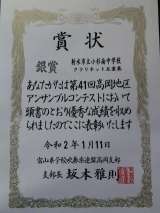 賞状
銀賞
射水市立小杉南中学校
クラリネット五重奏
あなたがたは第41回高岡地区
アンサンブルコンテストにおいて
頭書のとおり優秀な成績を収め
られましたのでここに表彰いたします
令和2年1月11日
富山県学校吹奏楽連盟高岡支部
支部長 坂本雅則